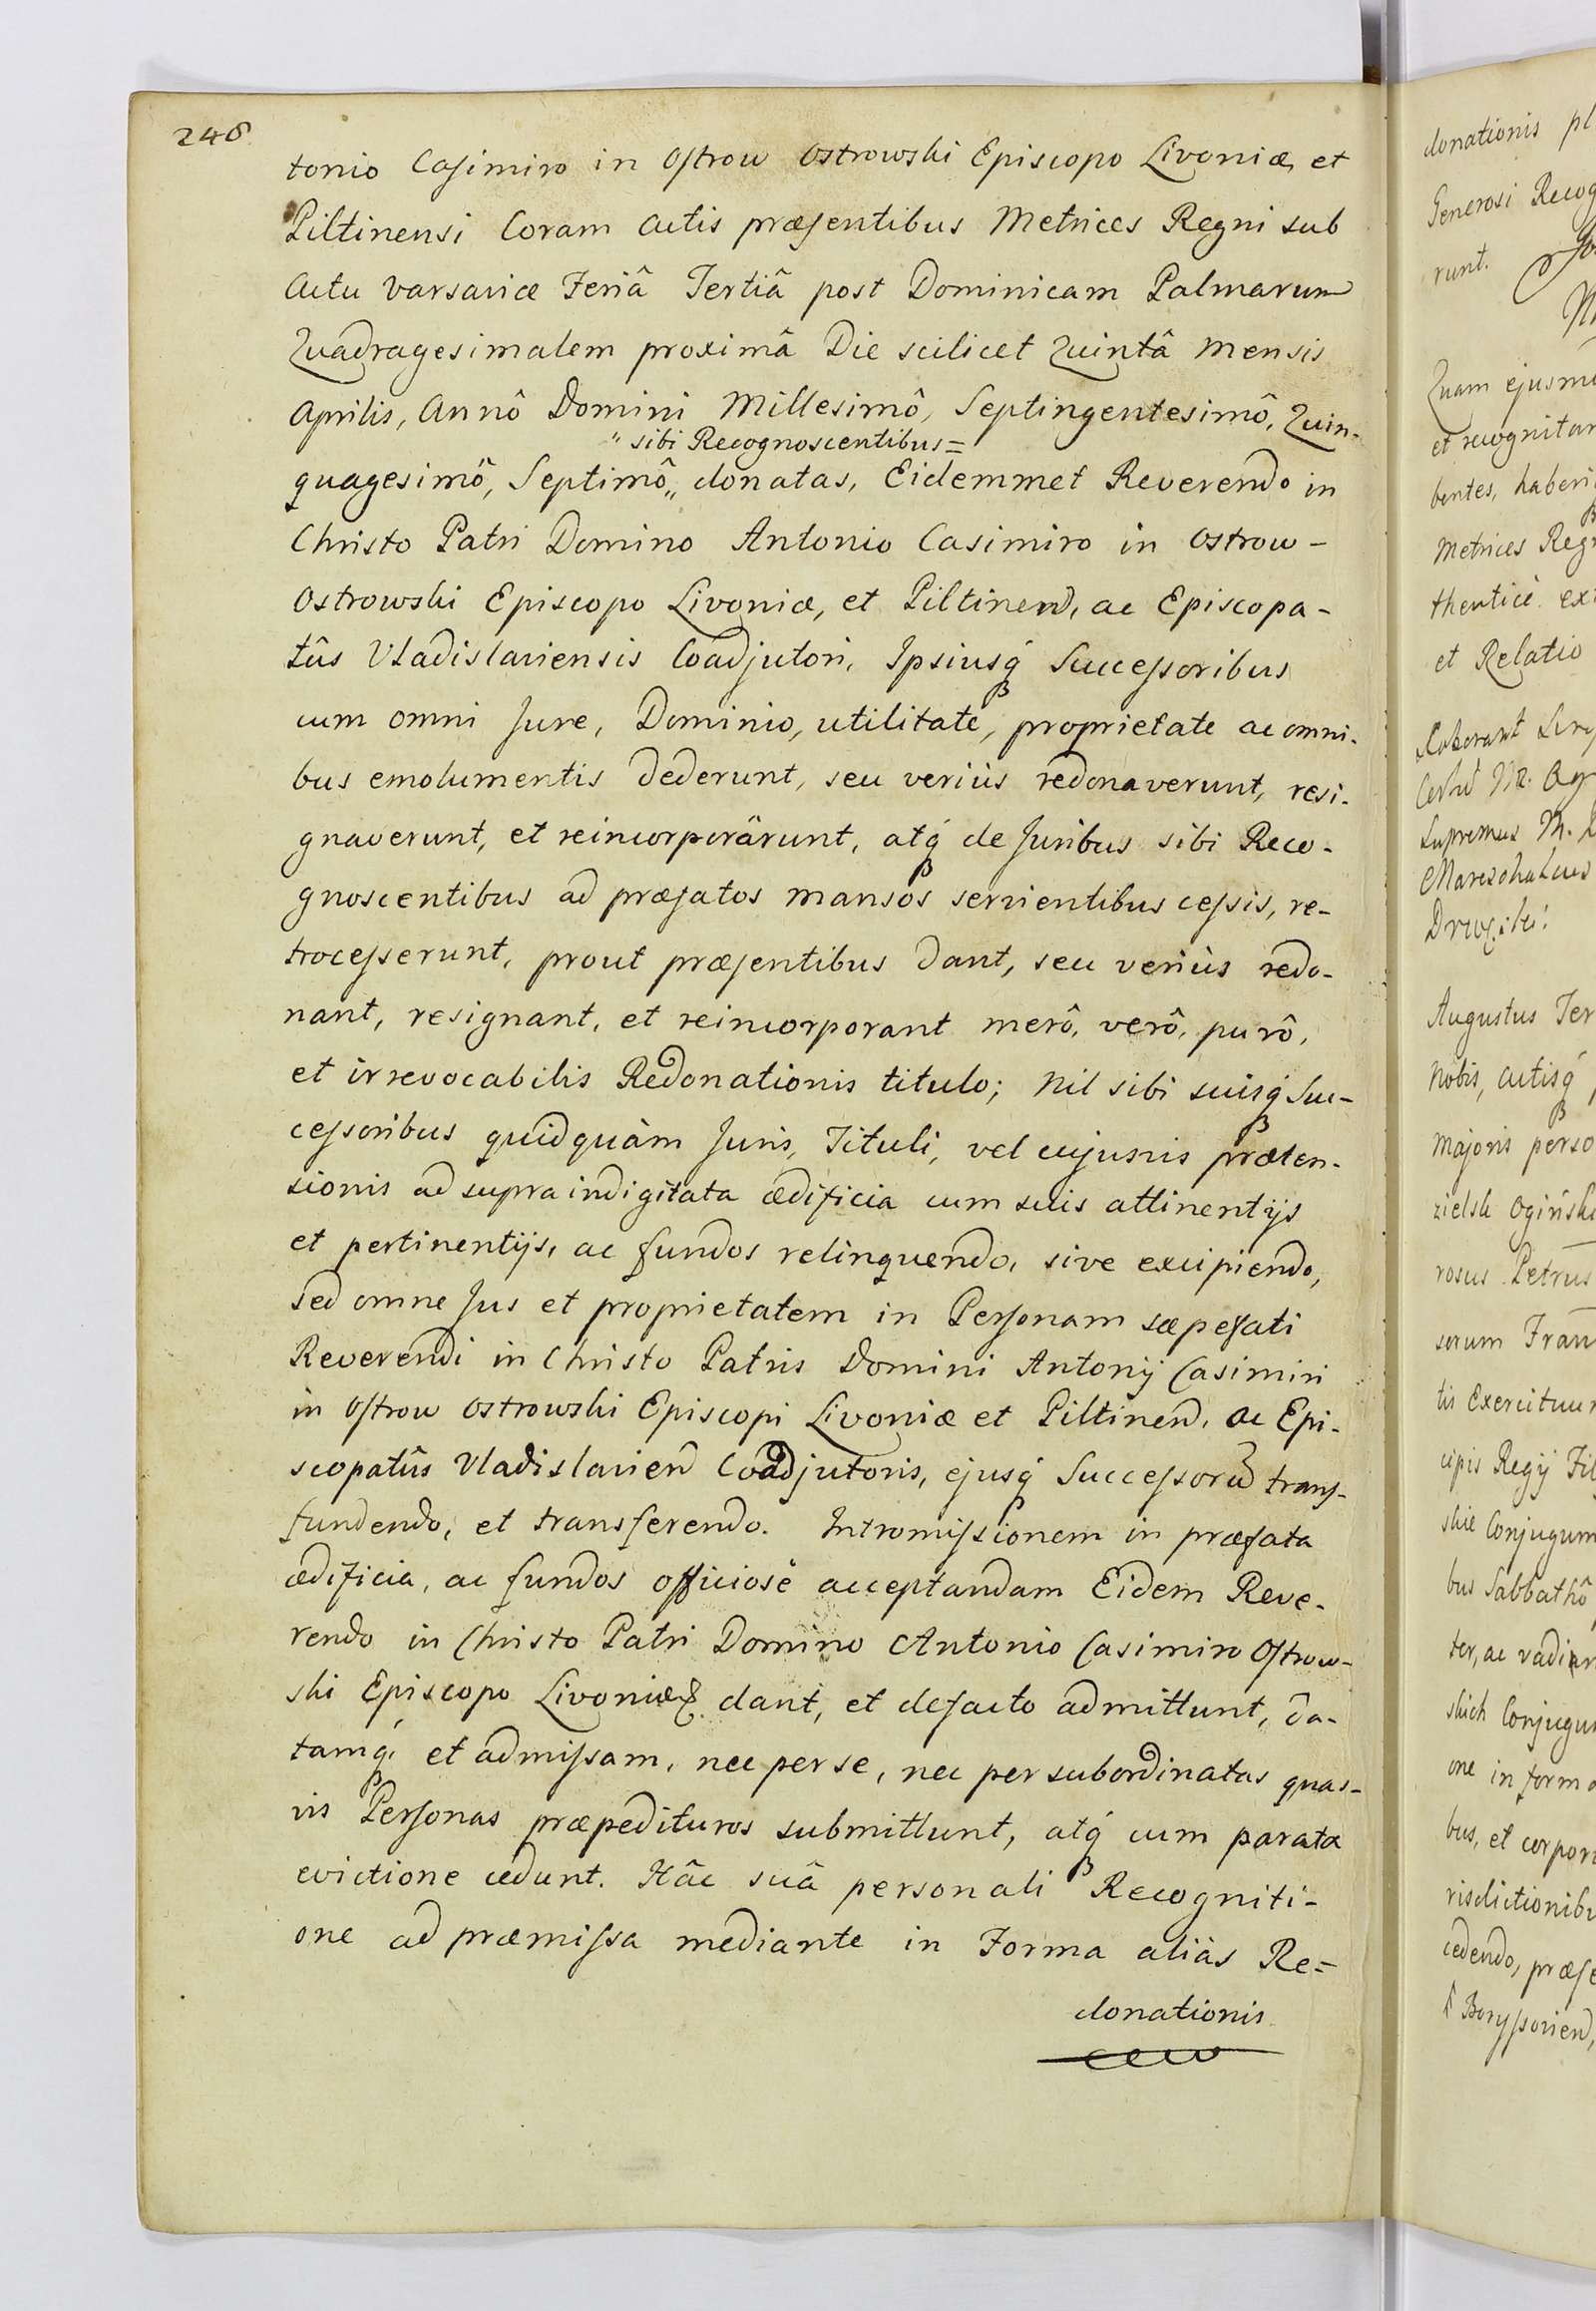 248
tonio Casimiro in Ostrow Ostrowski Episcopo Livoniæ, et
Piltinensi Coram Actis præsentibus Metrices Regni sub
Actu Varsaviæ Feriâ Tertiâ post Dominicam Palmarum
Quadragesimalem proximâ Die scilicet Quintâ Mensis
Aprilis, Annô Domini Millesimô, Septingentesimô, Quin-
" sibi Recognoscentibus =
quagesimô, Septimô „ donatas, Eidemmet Reverendo in
Christo Patri Domino Antonio Casimiro in Ostrow -
Ostrowski Episcopo Livoniæ, et Piltinen, ac Episcopa-
tûs Vladislaviensis Coadjutori, Ipsiusq́ Successoribus
cum omni Jure, Dominio, utilitate, proprietate ac omni-
bus emolumentis dederunt, seu veriùs redonaverunt, resi-
gnaverunt, et reincorporârunt, atq́ de Juribus sibi Reco-
gnoscentibus ad præfatos mansos servientibus cessis, re-
trocesserunt, prout præsentibus dant, seu veriùs redo-
nant, resignant, et reincorporant merô, verô, purô,
et irrevocabilis Redonationis titulo; Nil sibi suisq́ Suc-
cessoribus quidquàm Juris, Tituli, vel cujusvis præten-
sionis ad supra indigitata ædificia cum suis attinentijs
et pertinentijs, ac fundos relinquendo, sive excipiendo,
sed omne Jus et proprietatem in Personam sæpefati
Reverendi in Christo Patris Domini Antonij Casimiri
in Ostrow Ostrowski Episcopi Livoniæ et Piltinen, ac Epi-
scopatûs Vladislavien Coadjutoris, ejusq́ Successorū trans-
fundendo, et transferendo. Intromissionem in præfata
ædificia, ac fundos officiosè acceptandam Eidem Reve-
rendo in Christo Patri Domino Antonio Casimiro Ostrow-
ski Episcopo Livoniæ &. dant, et defacto admittunt, da-
tamq́, et admissam, nec per se, nec per subordinatas quas-
vis Personas præpedituros submittunt, atq́ cum parata
evictione cedunt. Hâc suâ personali Recogniti-
one ad præmissa mediante in Forma aliàs Re=
donationis
donationis
Generosi
runt.
Quam
et
bentes,
Metrices
thenticè
et Relatio
Supremus M.
Augustus
Nobis, Actisq́
Majoris
rosus Petrus
sorum
tis Exercituum
cipis Regij
skie Conjugum
bus Sabbathô
ter, ac
skich
one in forma
bus, et
cedendo,